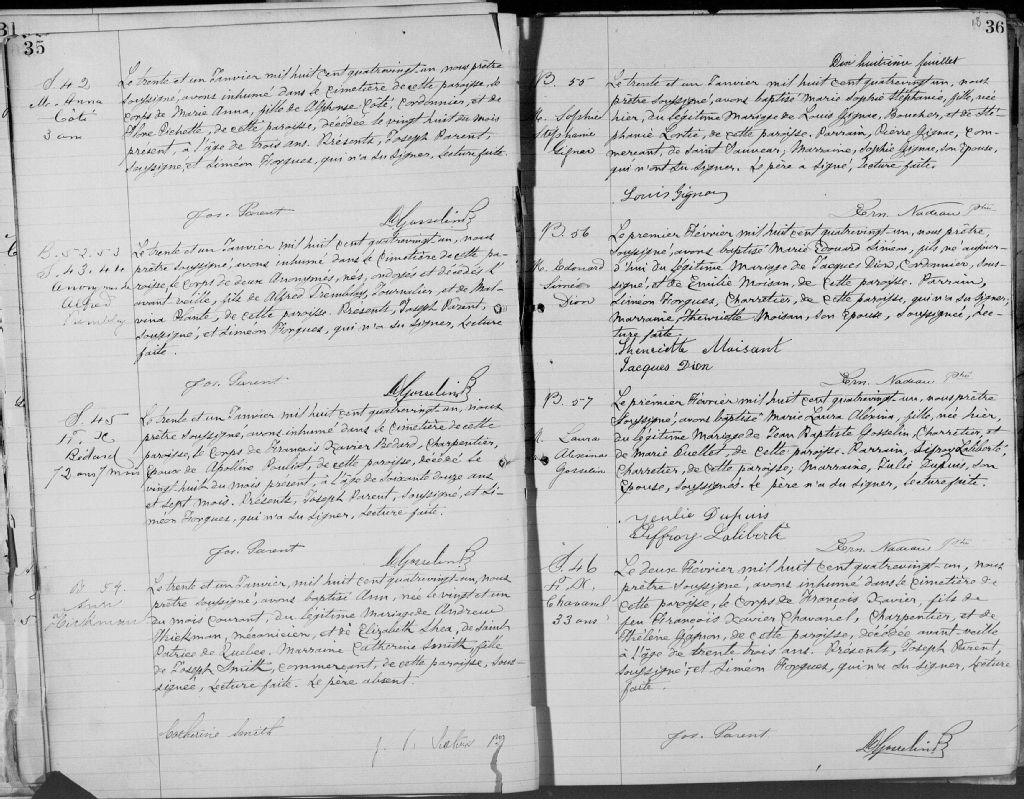 31
35
S. 42
M. Anna
Côté
3 ans
Le trente et un Janvier mil huit cent quatrevingt-un, nous prêtre
soussigné, avons inhumé dans le cimetière de cette paroisse, le
corps de Marie Anna, fille de Alphonse Côté, Cordonnier, et de
Pichette, de cette paroisse, décédée le vingt huit du mois
présent, à l'âge de trois ans. Présents, Joseph Parent,
soussigné, et Siméon Forgues, qui n'a su signer, lecture faite.
Jos. Parent
Gosselin
B. 52. 53
S. 43. 44
Anonymes de
Alfred
Tremblay
Le trente et un Janvier mil huit cent quatrevingt-un, nous
prêtre soussigné, avons inhumé dans le cimetière de cette pa-
roisse, le corps de deux Anonymes, nés, ondoyés et décédés l'
avant veille, fils de Alfred Tremblay, Journalier, et de Mal-
vina Plante, de cette paroisse. Présents, Joseph Parent,
soussigné, et Siméon Forgues, qui n'a su signer, lecture
faite.
Jos. Parent
Gosselin
S. 45
F. X.
Bédard
72 ans 7 mois
Le trente et un Janvier mil huit cent quatrevingt-un, nous
prêtre soussigné, avons inhumé dans le cimetière de cette
paroisse, le Corps de François Xavier Bédard, Charpentier,
Epoux de Apoline Pauliot, de cette paroisse, décédé le
vingt huit du mois présent, à l'âge de soixante douze ans
et sept mois. Présents, Joseph Parent, soussigné, et Si-
méon Forgues, qui n'a su signer, lecture faite.
Jos. Parent
Gosselin
B. 54.
Ann
Hickman
Le trente et un Janvier, mil huit cent quatrevingt-un, nous
prêtre soussigné, avons baptisé Ann, née le vingt et un
du mois courant, du légitime Mariage de Andrew
Hickman, mécanicien, et de Elizabeth Shea, de Saint
Patrice de Quebec. Marraine Catherine Smith, fille
de Joseph Smith, commerçant, de cette paroisse, sous-
signée, lecture faite. Le père absent.
Catherine Smith
18
36
Dix huitième feuillet
B. 55
M. Sophie
Stéphanie
Gignac
Le trente et un Janvier mil huit cent quatrevingt un, nous
prêtre soussigné, avons baptisé Marie Sophie Stéphanie, fille, née
hier, du légitime Mariage de Louis Gignac, Boucher, et de Sté-
phanie Lortie, de cette paroisse. Parrain, Pierre Gignac, com-
merçant, de Saint Sauveur; Marraine, Sophie Gignac, son Epouse,
qui n'ont su signer. Le père a signé, lecture faite.
Louis Gignac
Ern. Nadeau Ptre
B. 56
M. Edouard
Siméon
Dion
Le premier Février mil huit cent quatrevingt-un, nous prêtre,
soussigné, avons baptisé Marie Edouard Siméon, fils, né aujour-
d'hui du légitime Mariage de Jacques Dion, Cordonnier, sous-
signé, et de Emilie Moisan, de cette paroisse. Parrain,
Siméon Forgues, Charretier, de cette paroisse, qui n'a su signer;
Marraine, Henriette Moisan, son Epouse, soussignée, lec-
ture faite.
Henriette Moisant
Jacques Dion
Ern. Nadeau Ptre
B. 57
M. Laura
Alexina
Gosselin
Le premier Février mil huit cent quatrevingt-un, nous prêtre
soussigné, avons baptisé Marie Laura Alexina, fille, née hier,
du légitime Mariage de Jean Baptiste Gosselin, Charretier, et
de Marie Ouellet, de cette paroisse. Parrain, Sifroy Laliberté,
Charretier, de cette paroisse; Marraine, Julie Dupuis, son
Epouse, soussignés. Le père n'a su signer, lecture faite.
Yeulie Dupuis
Siffroy Laliberté
Ern. Nadeau Ptre
S. 46
F. X.
Chavanel
33 ans
Le deux Février mil huit cent quatrevingt-un, nous
prêtre soussigné, avons inhumé dans le cimetière de
cette paroisse, le corps de François Xavier, fils de
feu François Xavier Chavanel, Charpentier, et de
Hélène Gagnon, de cette paroisse, décédée avant veille
à l'âge de trente trois ans. Présents, Joseph Parent,
soussigné, et Siméon Forgues, qui n'a su signer, lecture
faite.
Jos. Parent
Gosselin